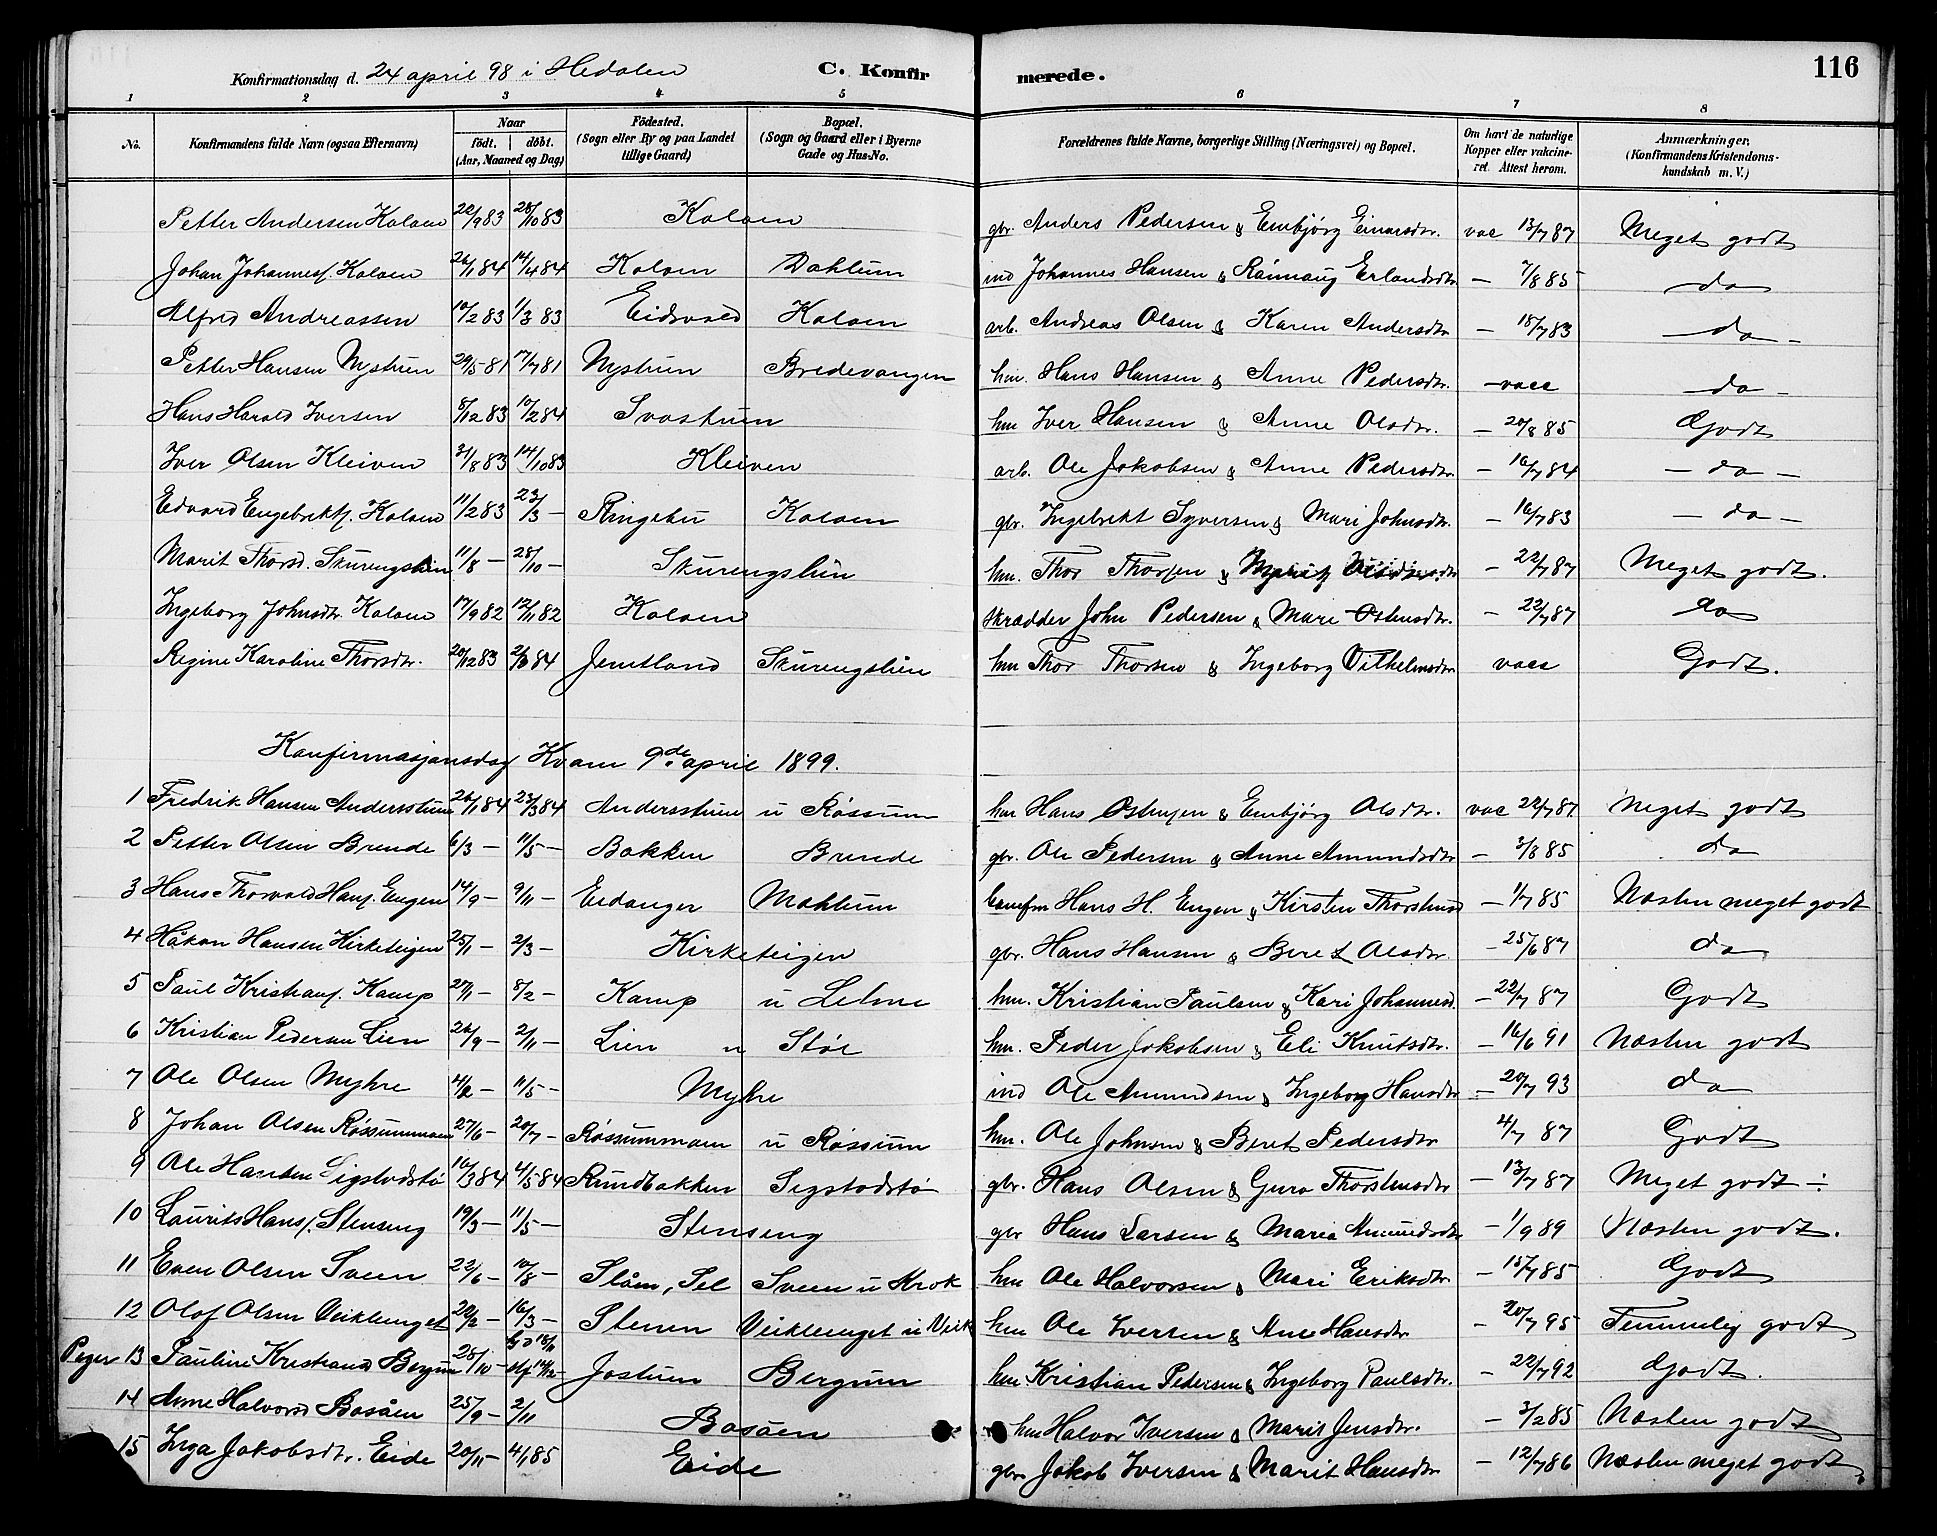 Konfirmationsdag d. 24 april 98 i Hedalen C. Konfirmerede. 116
1 2 3 4 5 6 7 8
No. Konfirmandens fulde Navn (ogsaa Efternavn) Naar födt. döbt. (Aar, Maaned og Dag) Födested. (Sogn eller By og paa Landet tillige Gaard) Bopæl. (Sogn og Gaard eller i Byerne Gade og Hus-No. Forældrenes fulde Navne, borgerlige Stilling (Næringsvei) og Bopæl. Om havt de naturlige Kopper eller vakcineret. Attest herom. Anmærkninger, (Konfirmandens Kristendomskundskab m. V.)
Petter Andersen Koloen 22/9 83 28/10 83 Koloen gbr. Anders Pedersen & Embjørg Einarsdtr. vac 13/7 87 Meget godt
Johan Johannesf. Koloen 26/1 84 14/4 84 Koloen Dahlum ind Johannes Hansen & Rønnaug Erlandsdtr — 7/8 85 do
Alfred Andreassen 10/2 83 1/3 83 Eidsvold Koloen arb. Andreas Olsen & Karen Andersdtr — 18/7 83 do
Petter Hansen Nystuen 29/5 81 17/7 81 Nystuen Bredevangen hm. Hans Hansen & Anne Pedersdtr. — vacc do
Hans Harald Iversen 8/12 83 10/2 84 Svastuen hm Iver Hansen & Anne Olsdtr. — 20/8 85 Godt
Iver Olsen Kleiven 31/8 83 14/10 83 Kleiven arb. Ole Jakobsen & Anne Pedersdtr. — 16/7 84 — do —
Edvard Engebrektf. Koloen 11/2 83 23/3 — Ringebu Koloen gbr. Ingebrekt Syversen & Mari Johnsdtr. — 16/7 83 — do —
Marit Thorsd. Skurengslien 11/8 — 28/10 — Skurengslien hm. Thor Thorsen & — 22/7 87 Meget godt.
Ingeborg Johnsdtr. Koloen 17/9 82 12/11 82 Koloen skrædder John Pedersen & Mari Ostensdtr. — 22/7 87 do
Regine Karoline Thorsdtr. 20/12 83 84 Jemtland Skurengslien hm Thor Thorsen & Ingeborg Vilhelmsdtr vacc Godt.
Konfirmasjonsdag Kvam 9de april 1899.
1 Fredrik Hansen Andersstuen 26/1 84 23/3 84 Andersstuen u Røssum hm Hans Ostensen & Embjørg Olsdtr. vac 22/7 87 Meget godt
2 Petter Olsen Brende 6/3 — 11/5 — Bakken Brende gbr. Ole Pedersen & Anne Amundsdtr — 3/8 85 do
3 Hans Thorvald Hansf. Engen 14/9 — 9/11 — Eidanger Moklum banefm Hans H. Engen & Kirsten Thorstensd — 1/7 85 Næsten meget godt
4 Håkon Hansen Kirketeigen 25/1 — 2/3 — Kirketeigen gbr. Hans Hansen & Beret Olsdtr — 25/6 87 do
5 Paul Kristianf. Kamp 27/1 — 8/2 — Kamp u Lelme hm. Kristian Paulsen & Kari Johannesd. — 22/7 87 Godt
6 Kristian Pedersen Lien 26/9 — 2/11 — Lien u Stør hm. Peder Jakobsen & Eli Knutsdtr. — 16/6 91 Næsten godt
7 Ole Olsen Myhre 4/2 — 11/5 — Myhre ind Ole Amundsen & Ingeborg Hansdtr — 20/7 93 do
8 Johan Olsen Røssummoen 27/6 — 20/7 — Røssummoen u Røssum hm. Ole Johnsen & Beret Pedersdtr 4/7 87 Godt
9 Ole Hansen Sigstadstø 16/3 84 4/5 84 Rundbakken Sigstadstø gbr. Hans Olsen & Guro Thorstensdtr — 13/7 87 Meget godt ÷
10 Laurits Hansf. Stenseng 19/3 — 11/5 — Stenseng gbr Hans Larsen & Maria Amundsdtr — 1/9 89 Næsten godt.
11 Even Olsen Sveen 22/6 — 10/8 — Slåm, Sel Sveen u Krok hm Ole Halvorsen & Mari Eriksdtr — 15/7 85 Godt
12 Olof Olsen Veiklenget 16/3 — Stenen Veiklenget u Veik hm Ole Iversen & Ane Hansdtr — 20/7 95 Temmelig godt
Piger 13 Pauline Kristiansd Bergum 28/10 — Jostuen Bergum hm Kristian Pedersen & Ingeborg Paulsdtr. — 22/7 92 Godt.
14 Anne Halvorsd Basåen 25/9 — 2/11 Basåen hm Halvor Iversen & Marit Jensdtr. — 3/2 85 Næsten godt
15 Inga Jakobsdtr. Eide 20/11 — 4/1 85 Eide gbr Jakob Iversen & Marit Hansdtr — 12/7 86 Næsten meget godt